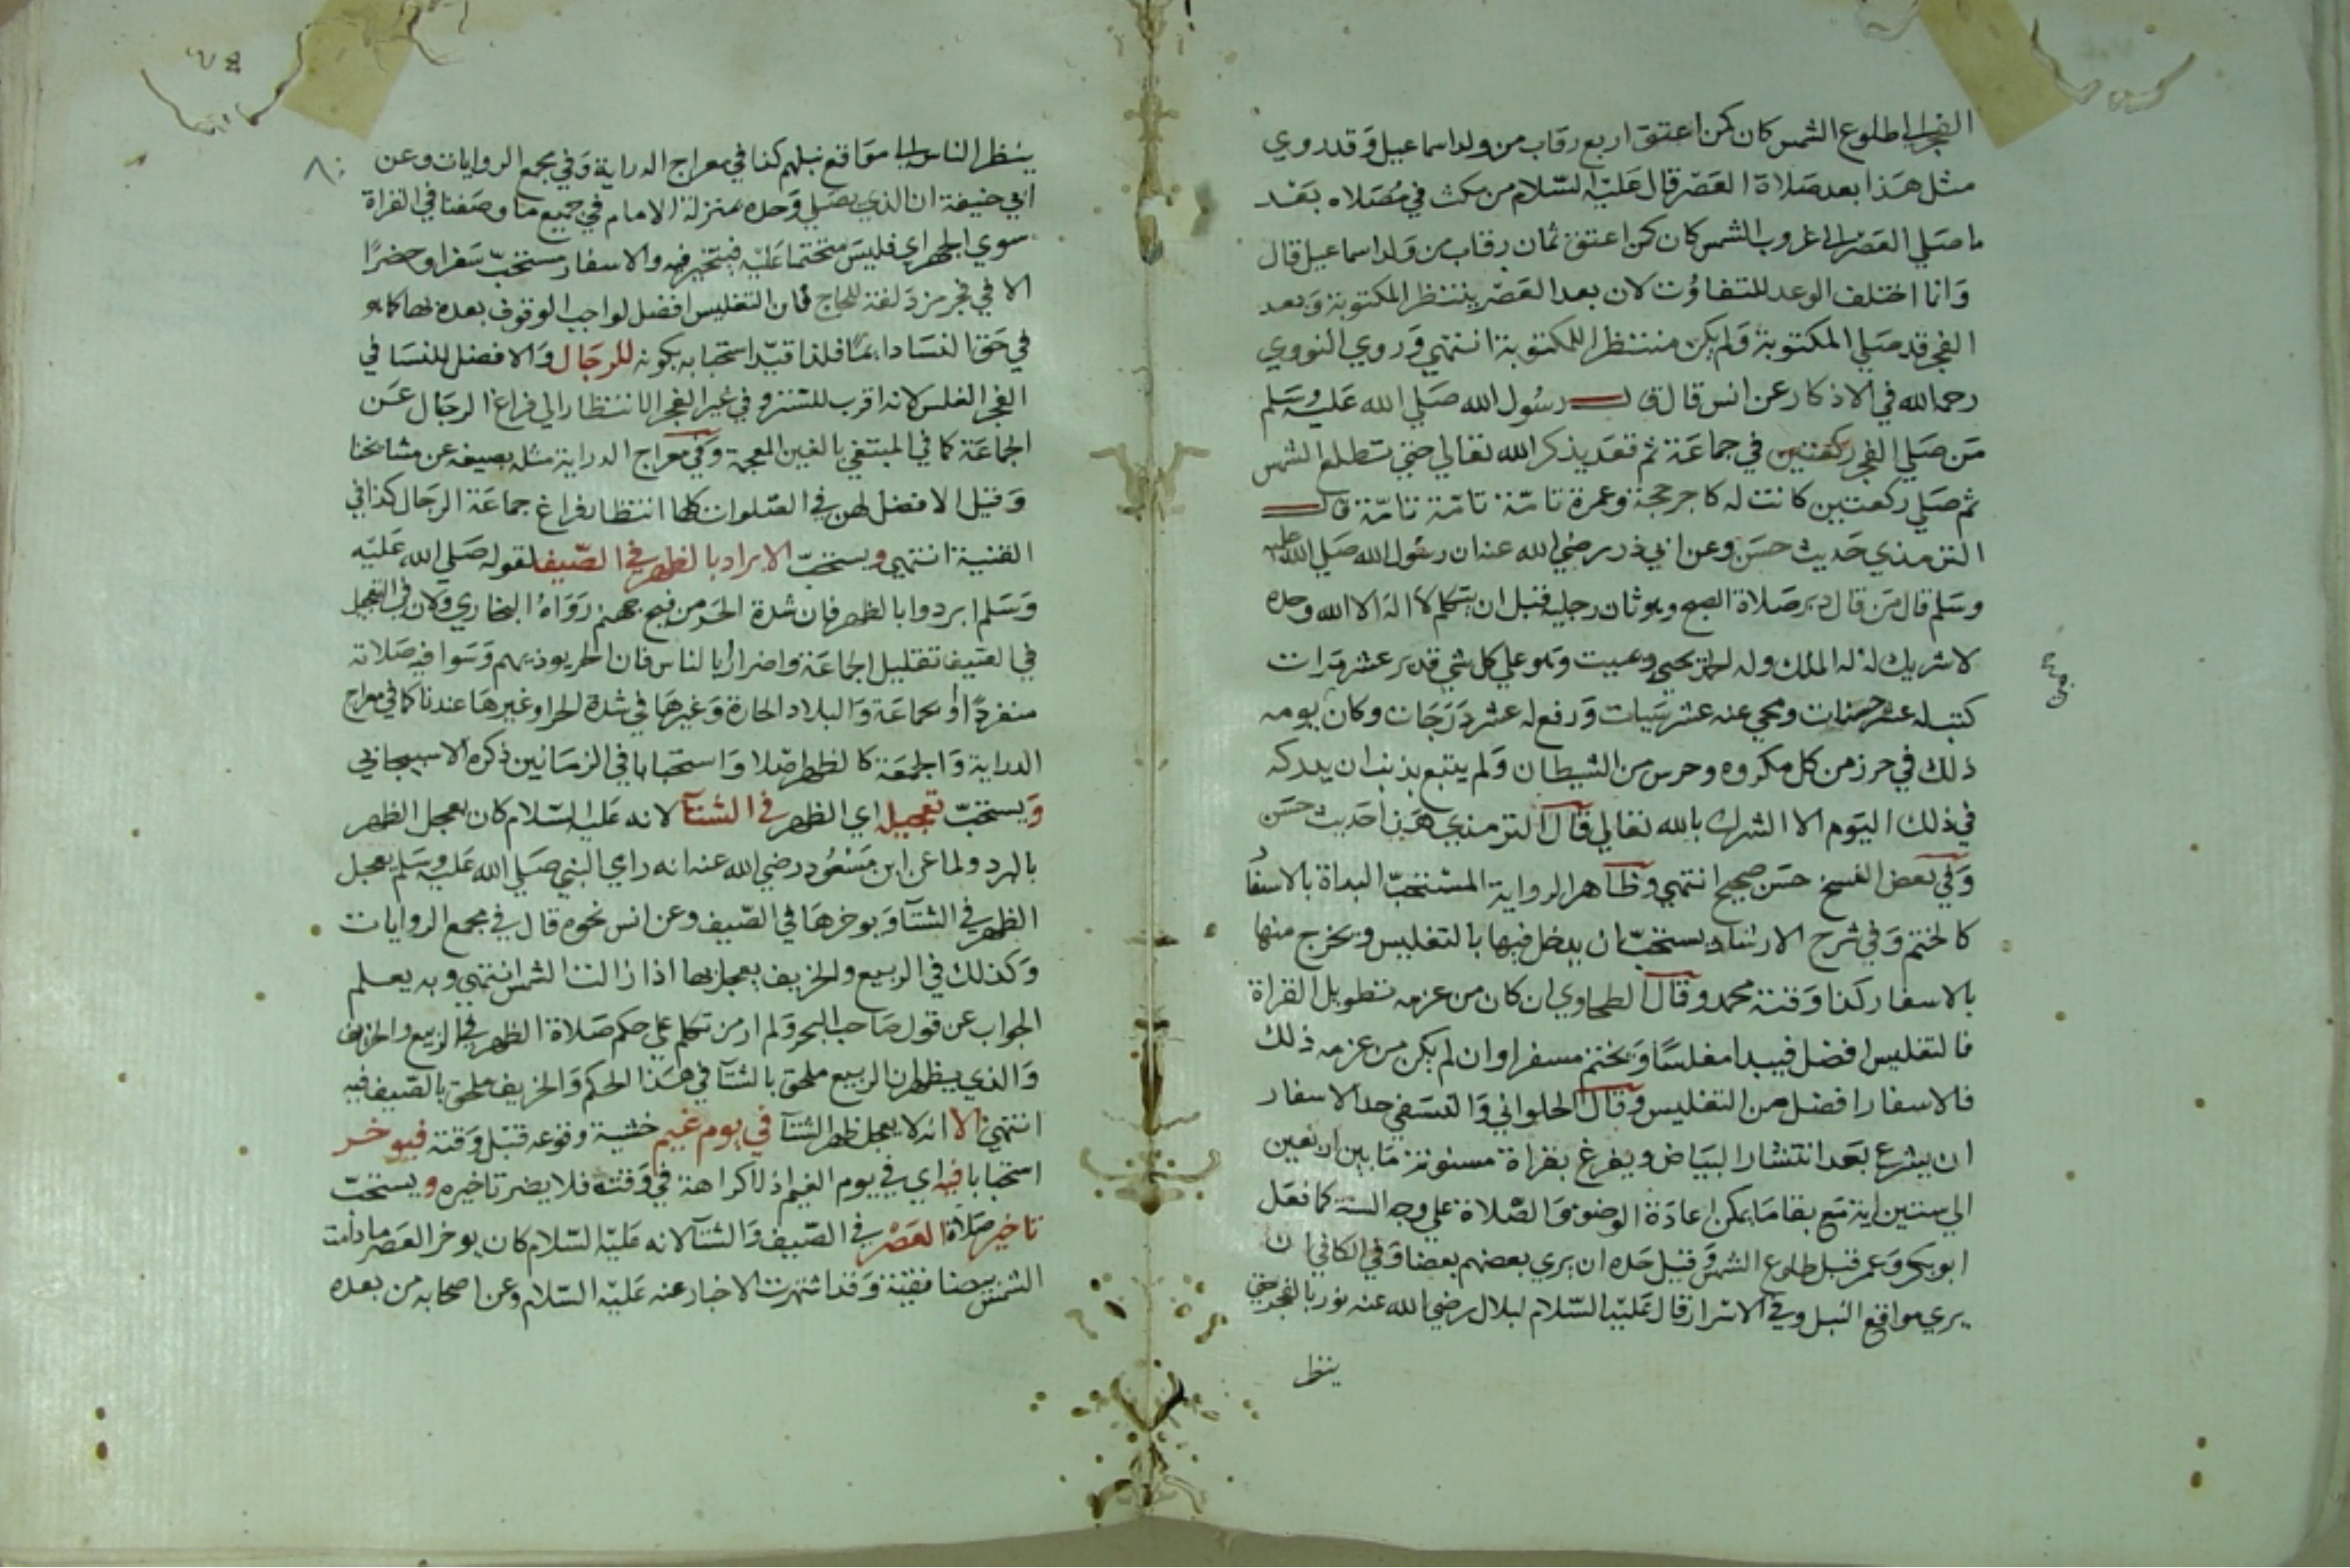 الفجر الى طلوع الشمس كان كمن اعتق اربع رقاب من ولد اسماعيل وقد روي
مثل هذا بعد صلاة العصر قال عليه السلام من مكث في مصلاه بعد
ما صلي العصر الى غروب الشمس كان كمن اعتق ثمان رقاب من ولد اسماعيل قال
وانما اختلف الوعد للتفاوت لان بعد العصر ينتظر المكتوبة وبعد
الفجر قد صلي المكتوبة ولم يكن منتظرا للمكتوبة انتهي وروي النووي
رحمه الله في الاذكار عن انس قال قال رسول الله صلي الله عليه وسلم
من صلي الفجر ركعتين في جماعة ثم قعد يذكر الله تعالي حتي تطلع الشمس
ثم صلي ركعتين كانت له كاجر حجة وعمرة تامة تامة تامة قال
الترمذي حديث حسن وعن ابي ذر رضي الله عنه ان رسول الله صلي الله عليه
وسلم قال من قال دبر صلاة الصبح وهو ثان رجليه قبل ان يتكلم لا اله الا الله وحده
لا شريك له له الملك وله الحمد يحيي ويميت وهو علي كل شي قدير عشر مرات
كتب له عشر حسنات ومحي عنه عشر سيات ورفع له عشر درجات وكان يومه
ذلك في حرز من كل مكروه وحرس من الشيطان ولم يتبع بذنب ان يدركه
في ذلك اليوم الا الشرك بالله تعالي قال الترمذي هذا حديث حسن
وفي بعض النسخ حسن صحيح انتهي وظاهر الرواية المستحب البداة بالاسفا
كالختم وفي شرح الارشاد يستحب ان يدخل فيها بالتغليس ويخرج منها
بالاسفار كذا وقتة محمد وقال الطحاوي ان كان من عزمه تطويل القراة
فالتغليس افضل فيبدا مغلسا ويختم مسفرا وان لم يكن من عزمه ذلك
فالاسفار افضل من التغليس وقال الحلواني والنسفي حد الاسفار
ان يشرع بعد انتشار البياض ويفرغ بقراة مسنونة ما بين اربعين
الي ستين اية مع بقا ما يمكن اعادة الوضوء والصلاة علي وجه السنة كما فعل
ابو بكر وعمر قبل طلوع الشمس وقيل حده ان يري بعضهم بعضا وفي الكافي ان
يري مواقع النبل وفي الاسرار قال عليه السلام لبلال رضي الله عنه نور بالفجر حتي
ينظر
٨٠
ينظر الناس الى مواقع نبلهم كذا في معراج الدراية وفي مجمع الروايات وعن
ابي حنيفة ان الذي يصلي وحده بمنزلة الامام في جميع ما وصفنا في القراة
سوي الجهر اي فليس متحتما عليه فيتخير فيه والاسفار مستحب سفرا وحضرا
الا في فجر مزدلفة للحاج فان التغليس افضل لواجب الوقوف بعده بها كما هو
في حق النسا دائما فلذا قيد استحبابه بكونه للرجال والافضل للنسا في
الفجر الغلس لانه اقرب للستر وفي غير الفجر الانتظار الي فراغ الرجال عن
الجماعة كما في المبتغي بالغين المعجمة وفي معراج الدراية مثله بصيغه عن مشائخنا
وقيل الافضل لهن في الصلوات كلها انتظار فراغ جماعة الرجال كذا في
القنية انتهي ويستحب الابراد بالظهر في الصيف لقوله صلي الله عليه
وسلم ابردوا بالظهر فان شدة الحر من فيح جهنم رواه البخاري وكان في التعجيل
في الصيف تقليل الجماعة واضرارا بالناس فان الحر يوذيهم وسوا فيه صلاته
منفردا او بجماعة والبلاد الحارة وغيرها في شدة الحر او غيرها عندنا كما في معراج
الدراية والجمعة كالظهر اصلا واستحبابا في الزمانين ذكره الاسبيجابي
ويستحب تعجيله اي الظهر في الشتا لانه عليه السلام كان يعجل الظهر
بالبرد ولما عن ابن مسعود رضي الله عنه انه راي النبي صلي الله عليه وسلم يعجل
الظهر في الشتا ويوخرها في الصيف وعن انس نحوه قال في مجمع الروايات
وكذلك في الربيع والخريف يعجل بها اذا زالت الشمس انتهي وبه يعلم
الجواب عن قول صاحب البحر ولم ار من تكلم علي حكم صلاة الظهر في الربيع والخريف
والذي يظهر ان الربيع ملحق بالشتا في هذا الحكم والخريف ملحق بالصيف فيه
انتهي الا انه لا يعجل ظهر الشتا في يوم غيم خشية وقوعه قبل وقته فيوخر
استحبابا فيه اي في يوم الغيم اذ لا كراهة في وقته فلا يضر تاخيره ويستحب
تاخير صلاة العصر في الصيف والشتا لانه عليه السلام كان يوخر العصر ما دامت
الشمس بيضا نقية وقد اشتهرت الاخبار عنه عليه السلام وعن اصحابه من بعده